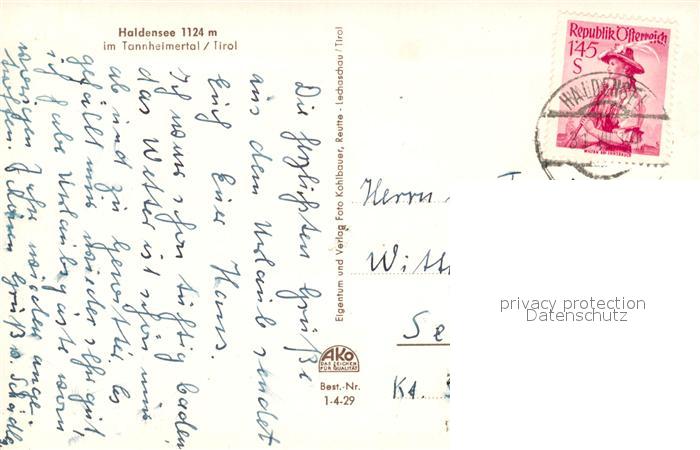 Haldensee 1124 m
im Tannheimertal / Tirol
Die herzlichsten Grüße
aus dem Urlaub sendet
Euch Euer Hans.
Ich war schon tüchtig baden
das Wetter ist schön nur
ab und zu Gewitter. Es
gefällt mir wieder sehr gut,
ich habe Urlaubsgäste vom
vorigen Jahr wieder ange-
troffen. Gruß
Eigentum und Verlag Foto Kohlbauer, Reutte - Lechaschau / Tirol
AKO
DAS ZEICHEN
FÜR QUALITÄT
Best.-Nr.
1-4-29
Republik Österreich
1'45
S
HALDENSEE
Herrn
With
Se
Kr.
privacy protection
Datenschutz